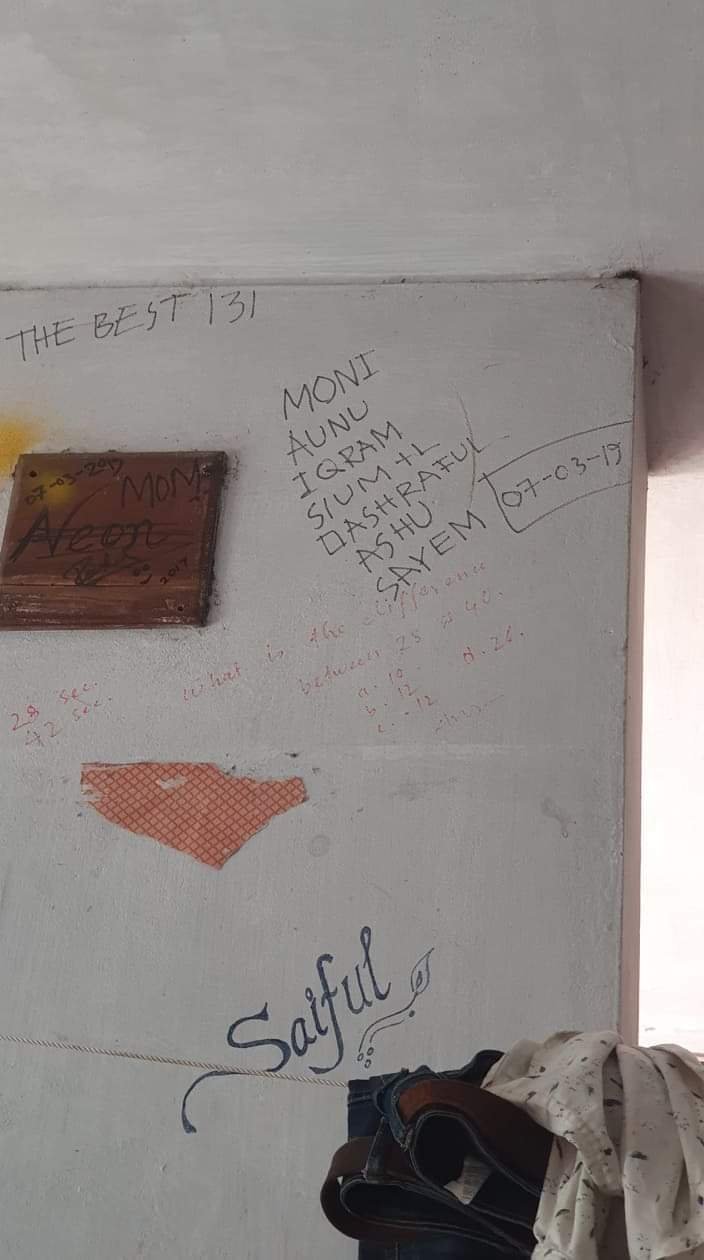 THE BEST 131
MONI
AUNU
IQRAM
SIUM +L
DASHRAFUL
ASHU
SAYEM
07-03-19
07-03-2017
MONI
Neon
2017
28 sec.
42 sec.
what is the difference
between 28 &
a. 10
b. 12
c. -12
d. 26.
Saiful